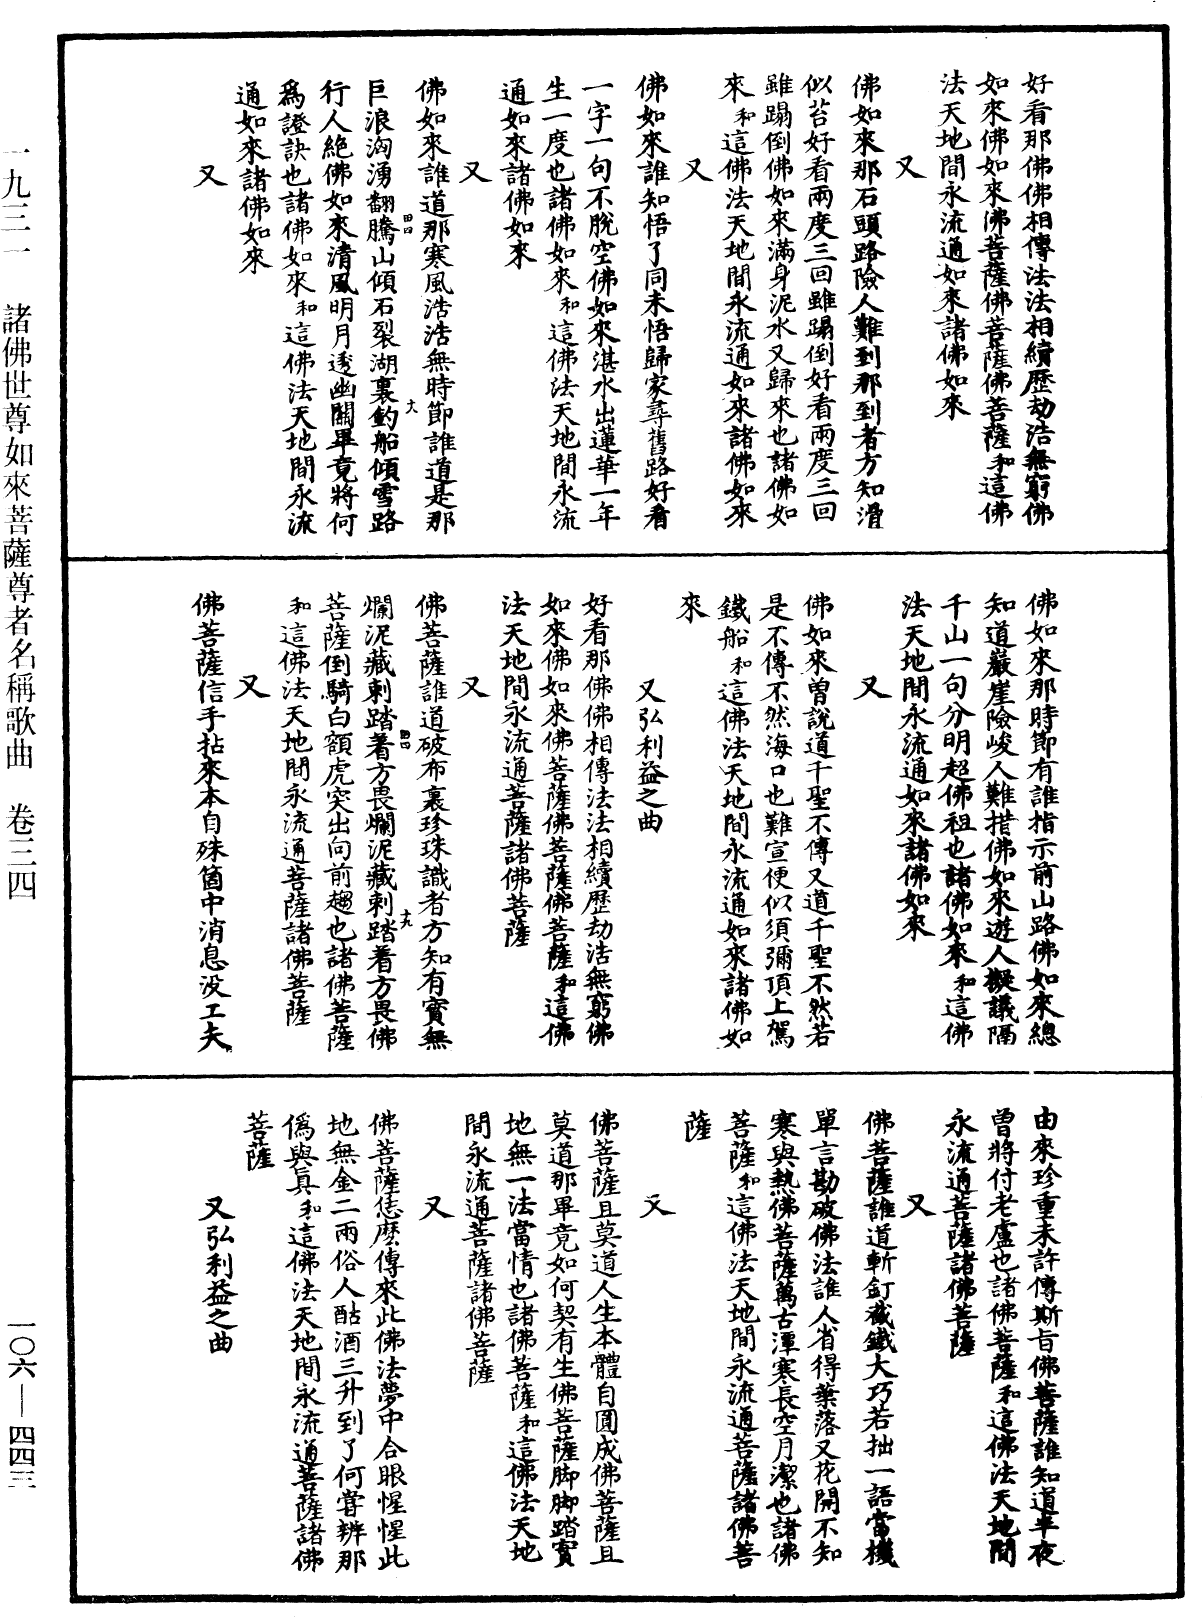 好看那佛佛相傳法法相續歷劫浩無窮佛
如來佛如來佛菩薩佛菩薩佛菩薩和這佛
法天地間永流通如來諸佛如來
又
佛如來那石頭路險人難到那到者方知滑
似苔好看兩度三回雖蹋倒好看兩度三回
雖蹋倒佛如來滿身泥水又歸來也諸佛如
來和這佛法天地間永流通如來諸佛如來
又
佛如來誰知悟了同未悟歸家尋舊路好看
一字一句不脫空佛如來湛水出蓮華一年
生一度也諸佛如來和這佛法天地間永流
通如來諸佛如來
又
佛如來誰道那寒風浩浩無時節誰道是那
巨浪洶湧翻騰山傾石裂湖裏釣船傾雪路
行人絕佛如來清風明月透幽關畢竟將何
爲證訣也諸佛如來和這佛法天地間永流
通如來諸佛如來
又
佛如來那時節有誰指示前山路佛如來總
知道巖崖險峻人難措佛如來遊人擬議隔
千山一句分明超佛祖也諸佛如來和這佛
法天地間永流通如來諸佛如來
又
佛如來曾說道千聖不傳又道千聖不然若
是不傳不然海口也難宣便似須彌頂上駕
鐵船和這佛法天地間永流通如來諸佛如
來
又弘利益之曲
好看那佛佛相傳法法相續歷劫浩無窮佛
如來佛如來佛菩薩佛菩薩佛菩薩和這佛
法天地間永流通菩薩諸佛菩薩
又
佛菩薩誰道破布裏珍珠識者方知有寶無
爛泥藏刺踏着方畏爛泥藏刺踏着方畏佛
菩薩倒騎白額虎突出向前趨也諸佛菩薩
和這佛法天地間永流通菩薩諸佛菩薩
又
佛菩薩信手拈來本自殊箇中消息没工夫
由來珍重未許傳斯旨佛菩薩誰知道半夜
曾將付老盧也諸佛菩薩和這佛法天地間
永流通菩薩諸佛菩薩
又
佛菩薩誰道斬釘截鐵大巧若拙一語當機
單言勘破佛法誰人省得葉落又花開不知
寒與熱佛菩薩萬古潭寒長空月潔也諸佛
菩薩和這佛法天地間永流通菩薩諸佛菩
薩
又
佛菩薩且莫道人生本體自圓成佛菩薩且
莫道那畢竟如何契有生佛菩薩脚脚踏實
地無一法當情也諸佛菩薩和這佛法天地
間永流通菩薩諸佛菩薩
又
佛菩薩恁麼傳來此佛法夢中合眼惺惺此
地無金二兩俗人酤酒三升到了何甞辨那
僞與真和這佛法天地間永流通菩薩諸佛
菩薩
又弘利益之曲
一九三一 諸佛世尊如來菩薩尊者名稱歌曲 卷三四
一〇六—四四三